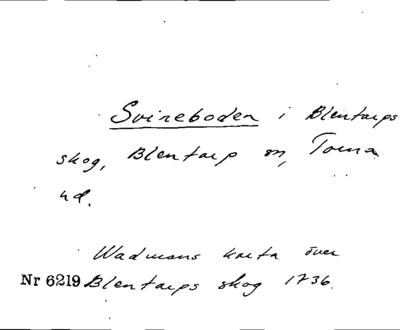 Svireboden i Blentarps
skog, Blentarp sn, Torna
hd.
Wadmans karta över
Nr 6219 Blentarps skog 1736.